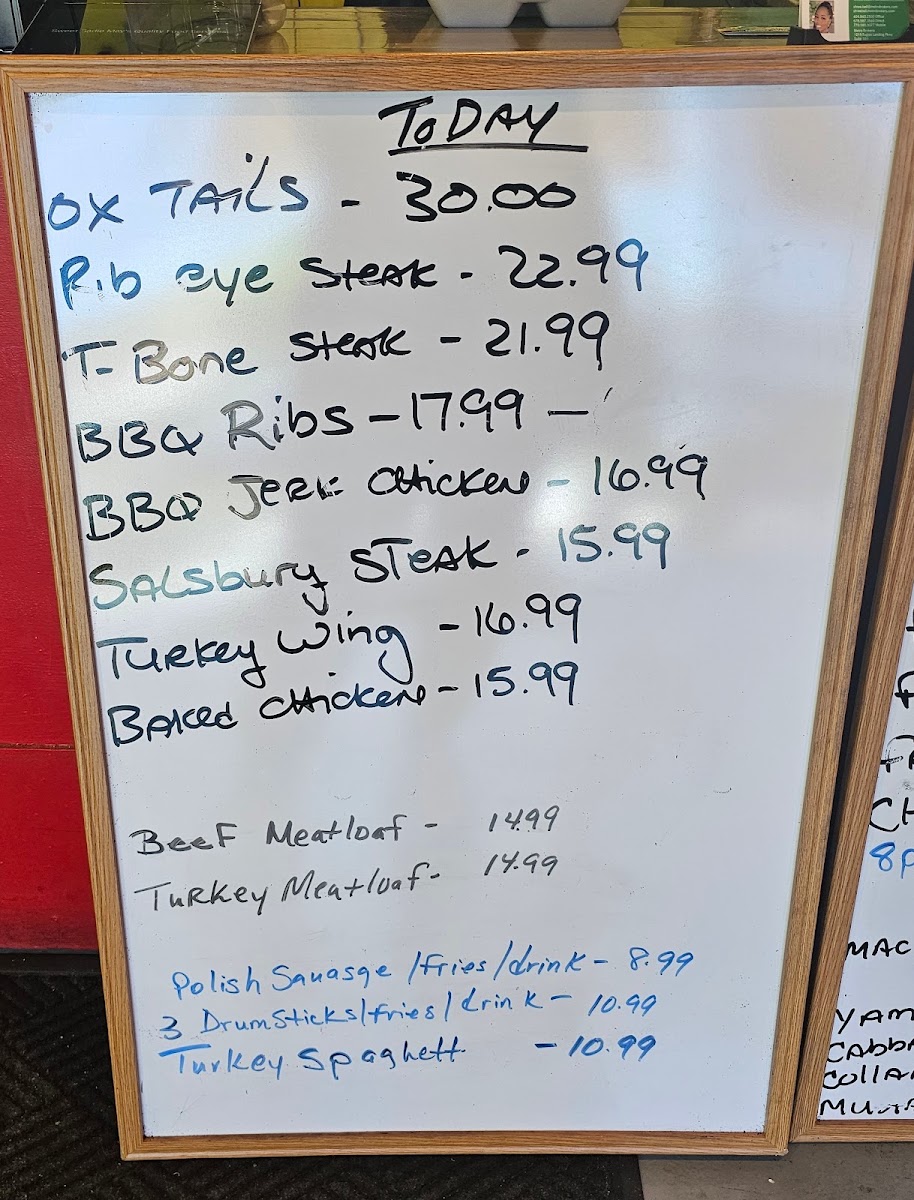 TODAY
OX TAILS - 30.00
Rib eye Steak - 22.99
T-Bone Steak - 21.99
BBQ Ribs - 17.99 -
BBQ Jerk Chicken - 16.99
SALSbury STEAK - 15.99
Turkey Wing - 16.99
BAKED Chicken - 15.99
BeeF Meatloaf - 14.99
Turkey Meatloaf - 14.99
Polish Sauasge /fries/drink - 8.99
3 DrumSticks/fries/drink - 10.99
Turkey Spaghetti - 10.99
CH
8p
MAC
YAM
CABBA
COLLA